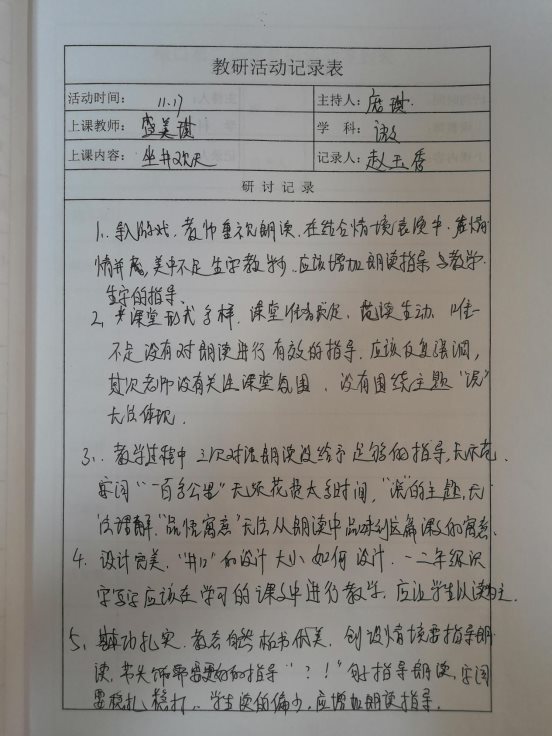 教研活动记录表
活动时间： 11.17 主持人：
上课教师：盛美谢 学 科：语文
上课内容：坐井观天 记录人：赵玉香
研讨记录
1、导入游戏，教师重视朗读，在结合情境表演中，声情
情并茂，美中不足生字教学少，应该增加朗读指导与教学
生字的指导。
2、课堂形式多样，课堂准备充足，范读生动，唯一
不足没有对朗读进行有效的指导，应该反复强调，
其次老师没有关注课堂氛围，没有围绕主题“误”
无法体现。
3、教学过程中三次对话朗读没给予足够的指导，无示范，
字词“一百多公里”无须花费太多时间，“误”的主题，无
法理解，“品悟寓意”无法从朗读中品味到这篇课文的寓意。
4、设计完美，“井口”的设计大小如何设计，一二年级识
字写字应该在学习的课文中进行教学，应该学生以读为主。
5、基本功扎实，教态自然板书优美，创设情境要指导朗
读，需要更好的指导“？！”的指导朗读，字词
要稳扎稳打，学生读的偏少，应增加朗读指导。